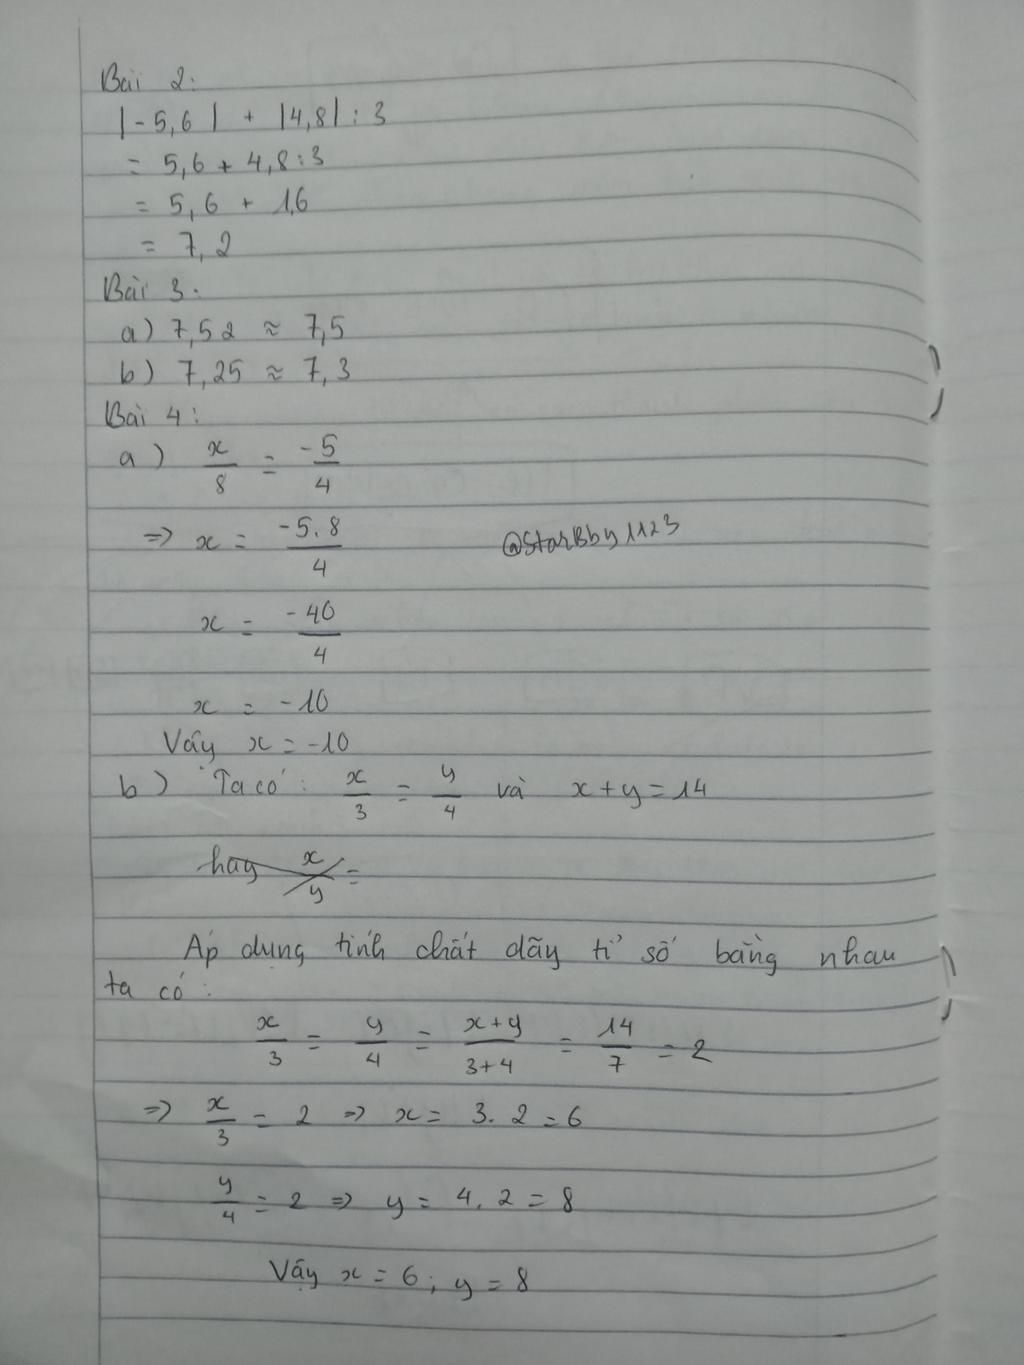 Bài 2:
|-5,6| + |4,8| : 3
= 5,6 + 4,8:3
= 5,6 + 1,6
= 7,2
Bài 3.
a) 7,52 ≈ 7,5
b) 7,25 ≈ 7,3
Bài 4:
a) x/8 = -5/4
=> x = -5.8/4
@StarBby1123
x = -40/4
x = -10
Vậy x = -10
b) Ta có: x/3 = y/4 và x+y=14
hay x/y =
Áp dụng tính chất dãy tỉ số bằng nhau
ta có:
x/3 = y/4 = x+y/3+4 = 14/7 = 2
=> x/3 = 2 => x = 3.2 = 6
y/4 = 2 => y = 4.2 = 8
Vậy x = 6; y = 8